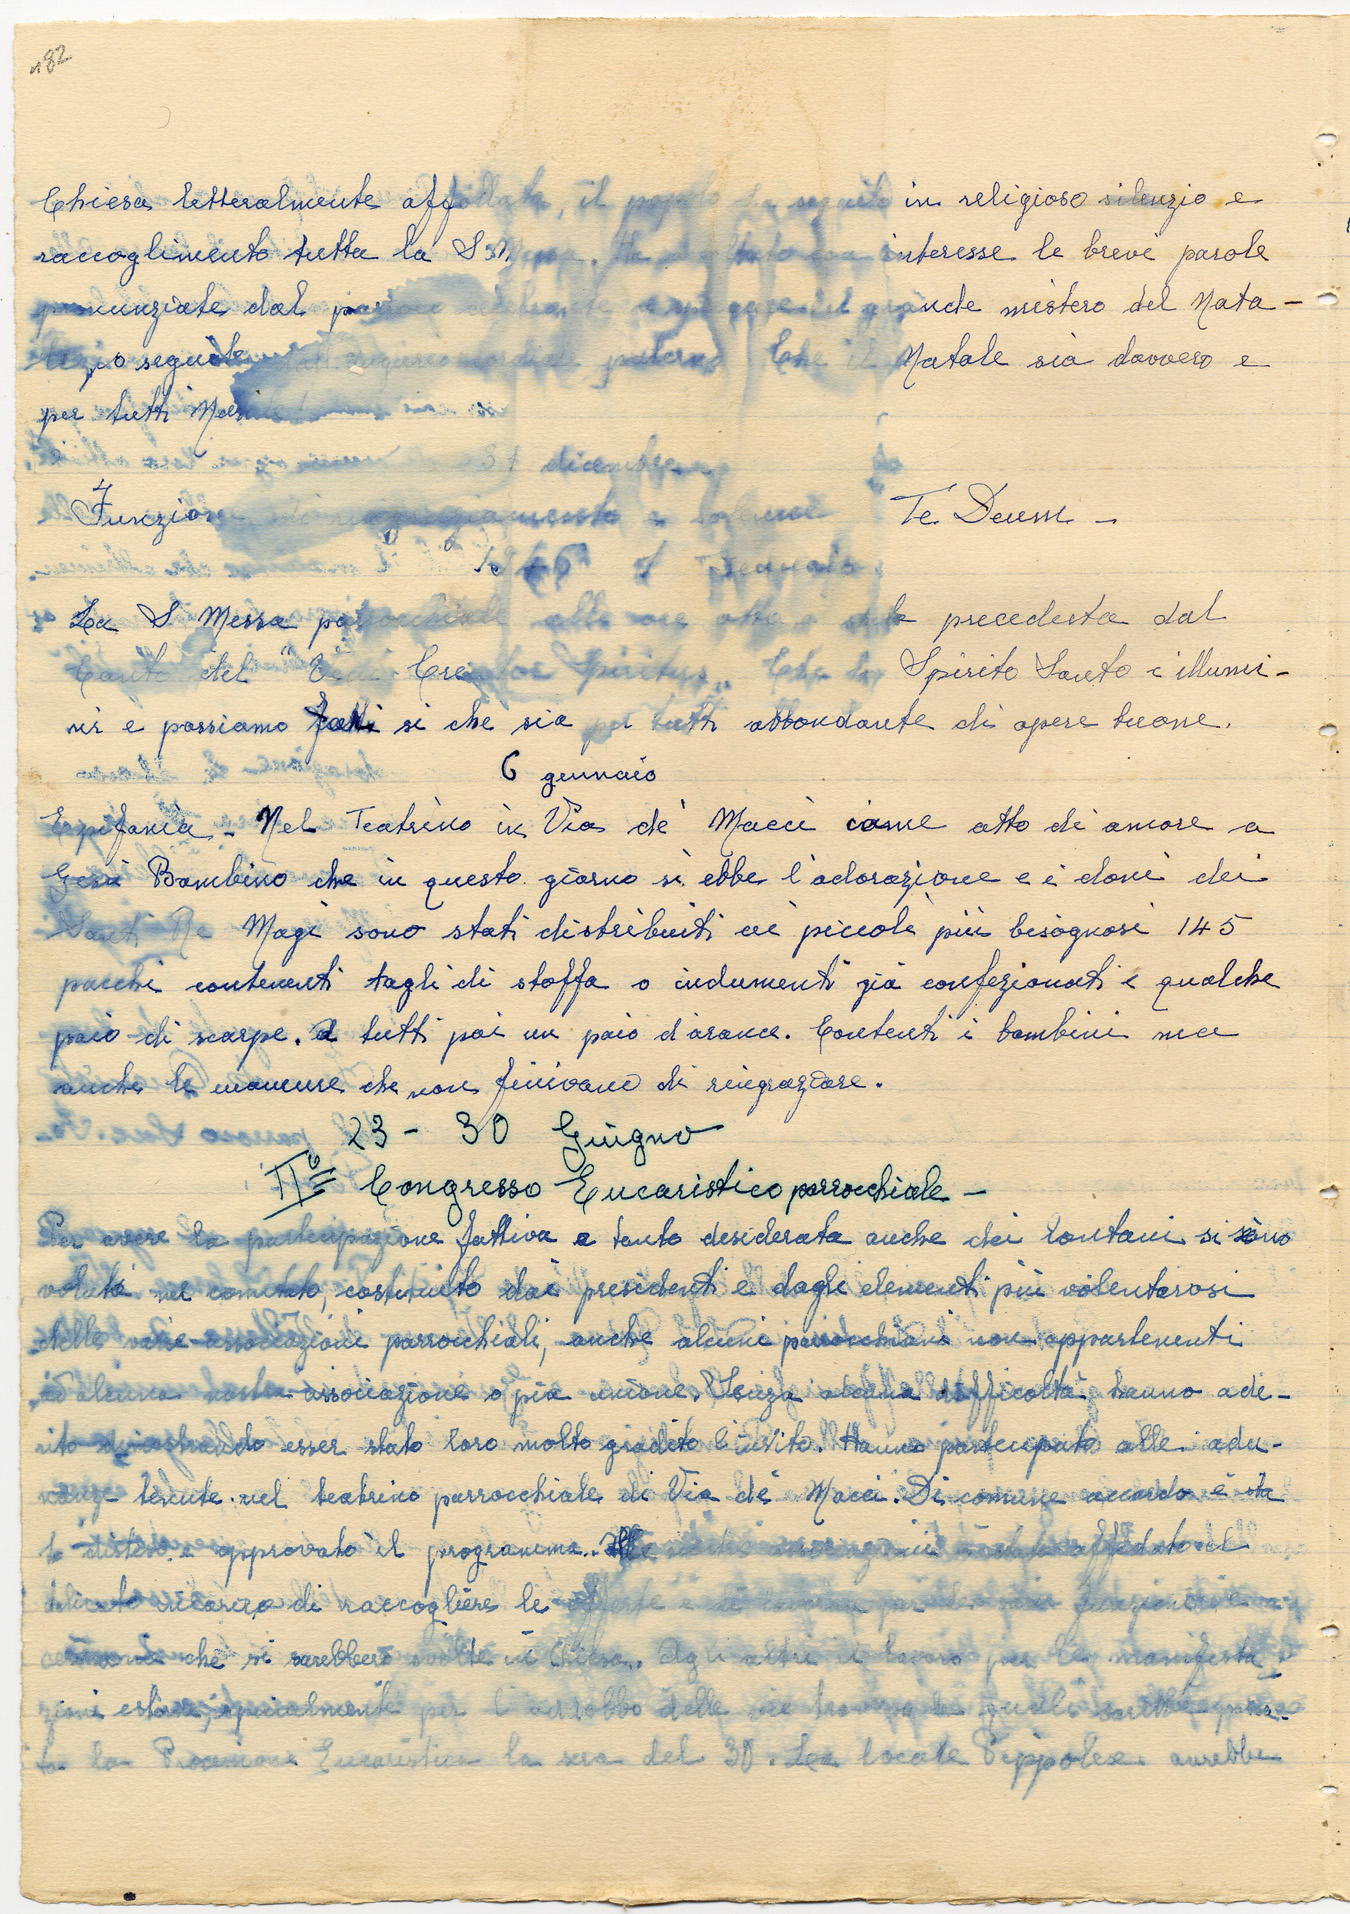 182
Chiesa letteralmente affollata, il popolo ha seguito in religioso silenzio e
raccoglimento tutta la S. Messa. Ha ascoltato con interesse le breve parole
pronunziate dal parroco celebrante a spiegare il grande mistero del Nata-
lizio seguite paterno Che il Natale sia davvero e
per tutti
31 dicembre
Funzione di ringraziamento e solenne Te Deum -
1946 1 Gennaio
La S Messa parrocchiale alle ore otto è stata precedesta dal
Canto del "Veni Creator Spiritus„ Che lo Spirito Santo c illumi-
ni e possiamo far si che sia per tutti abbondante di opere buone.
6 gennaio
Epifania - Nel Teatrino in Via de' Macci come atto di amore a
Gesù Bambino che in questo giorno si ebbe l'adorazione e i doni dei
Santi Re Magi sono stati distribuiti ai piccoli più bisognosi 145
pacchi contenenti tagli di stoffa o indumenti già confezionati e qualche
paio di scarpe. A tutti poi un paio d'arance. Contenti i bambini ma
anche le mamme che non finivano di ringraziare.
23 - 30 Giugno
IIº Congresso Eucaristico parrocchiale -
Per avere la partecipazione fattiva e tanto desiderata anche dei lontani si sono
voluti nel comitato, costituito dai presidenti e dagli elementi più volenterosi
delle varie associazioni parrocchiali, anche alcuni parrocchiani non appartenenti
ad alcuna nostra associazione o pia unione. Senza alcuna difficoltà hanno ade-
rito dimostrando esser stato loro molto gradito l'invito. Hanno partecipato alle adu-
nanze tenute nel teatrino parrocchiale di Via de' Macci. Di comune accordo è sta
to disteso e approvato il programma. Alle associazioni è stato affidato il
delicato incarico di raccogliere le offerte e di lavorare per le varie funzioni e
cerimonie che si sarebbero svolte in Chiesa. Agli altri il lavoro per le manifesta
zioni esterne, specialmente per l'addobbo delle vie traverso le quali sarebbe passa-
ta la Processione Eucaristica la sera del 30. La locale Pippolese avrebbe